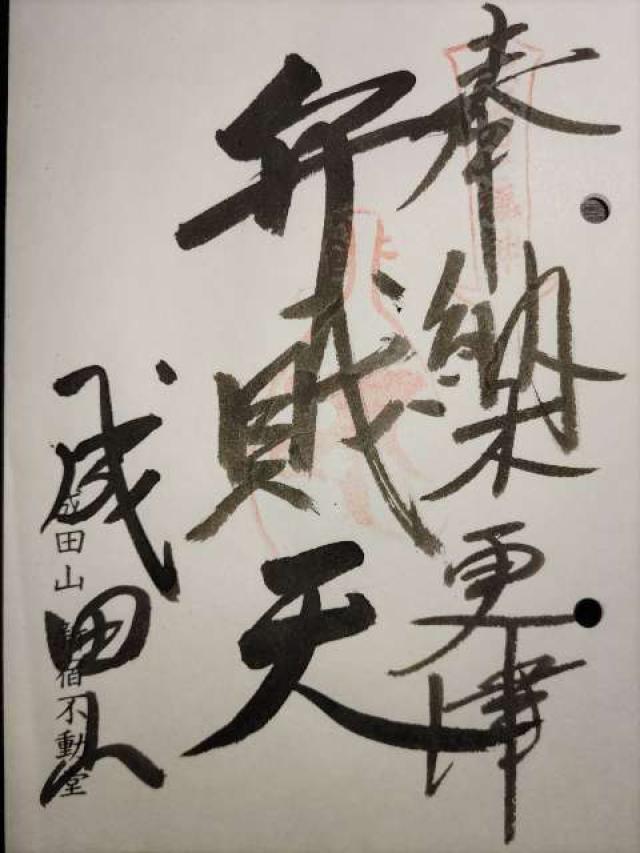 奉納木更津
弁財天
成田山
成田山 新宿不動堂